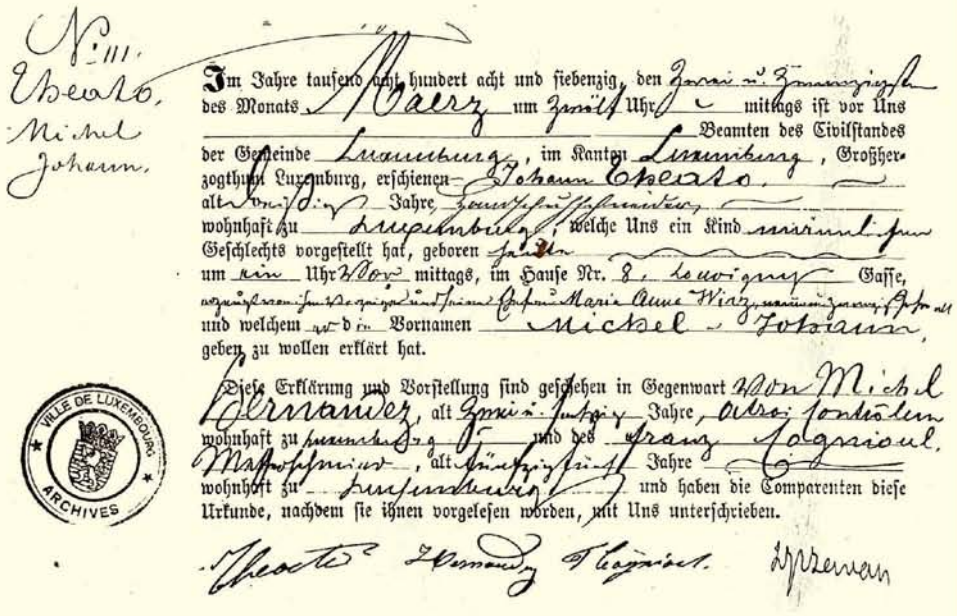 N° 111.
Theato,
Michel
Johann.
Im Jahre tausend acht hundert acht und siebenzig, den Zwei u. Zwanzigsten
des Monats Maerz um Zwölf Uhr mittags ist vor Uns
Beamten des Civilstandes
der Gemeinde Luxemburg, im Kanton Luxemburg, Großher-
zogthum Luxemburg, erschienen Johann Theato.
alt dreißig Jahre, Handschuhschneider,
wohnhaft zu Luxemburg, welche Uns ein Kind männlichen
Geschlechts vorgestellt hat, geboren heute
um ein Uhr Vor mittags, im Hause Nr. 8. Louvigny Gasse,
erzeugt von ihm und seiner Ehefrau Maria Anne Wirz, Jahre alt
und welchem er die Vornamen Michel - Johann,
geben zu wollen erklärt hat.
Diese Erklärung und Vorstellung sind geschehen in Gegenwart Von Michel
Hernandez, alt Zwei u. Jahre, Octroi
wohnhaft zu Luxemburg und des Franz
, alt fünfzig fünf Jahre
wohnhaft zu Luxemburg und haben die Comparenten diese
Urkunde, nachdem sie ihnen vorgelesen worden, mit Uns unterschrieben.
Theato Hernandez
VILLE DE LUXEMBOURG
ARCHIVES